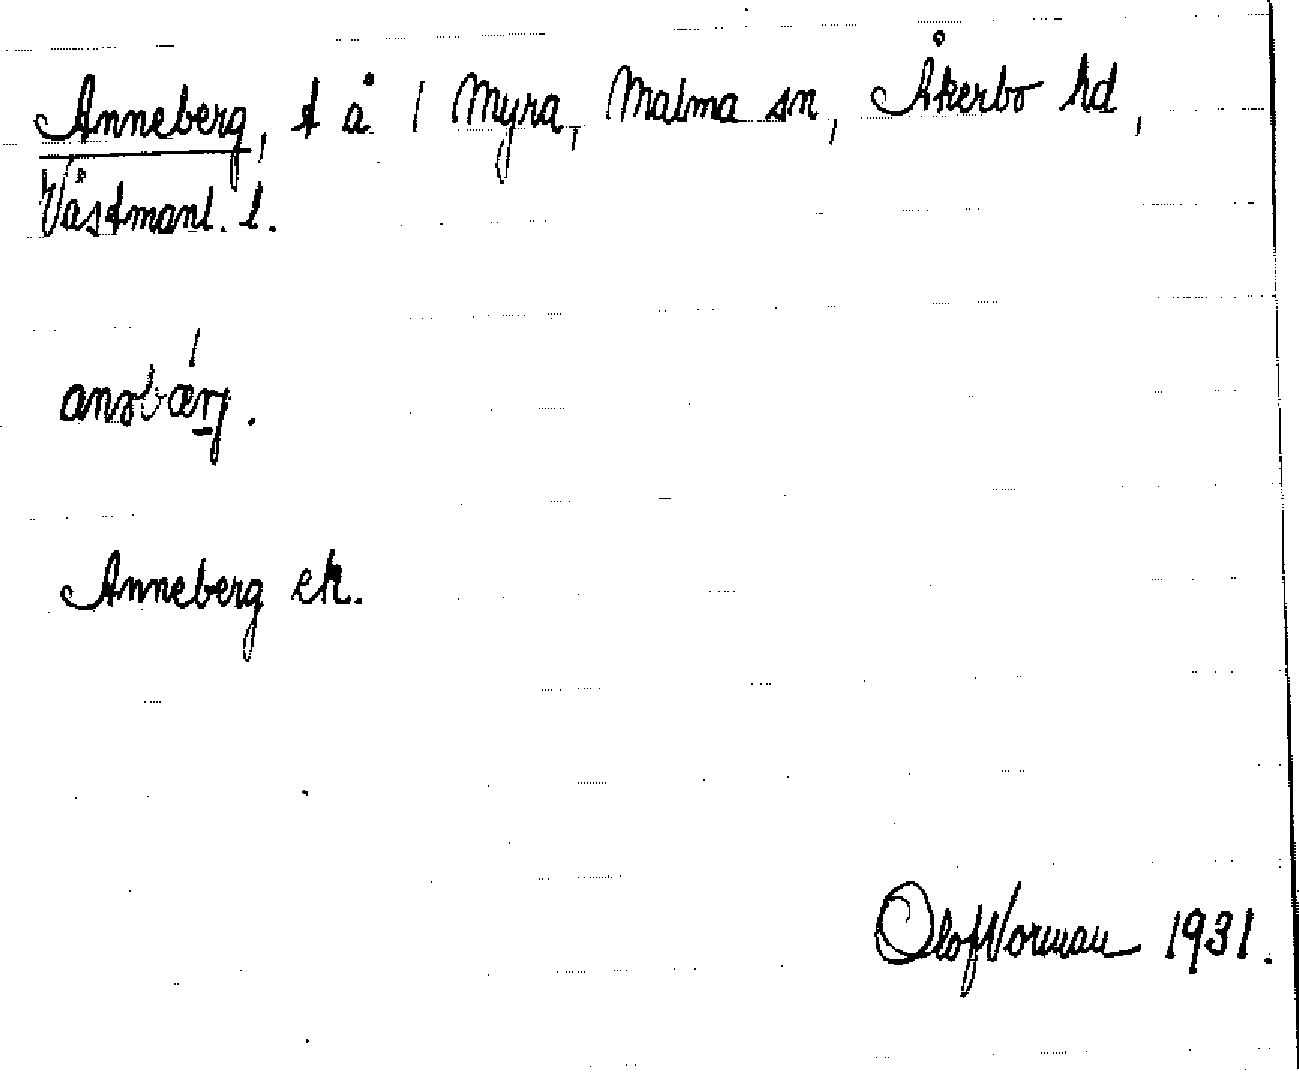 Anneberg, t å 1 Myra, Malma sn, Åkerbo hd,
Västmanl. l.
Anneberg ek.
Olof Norman 1931.